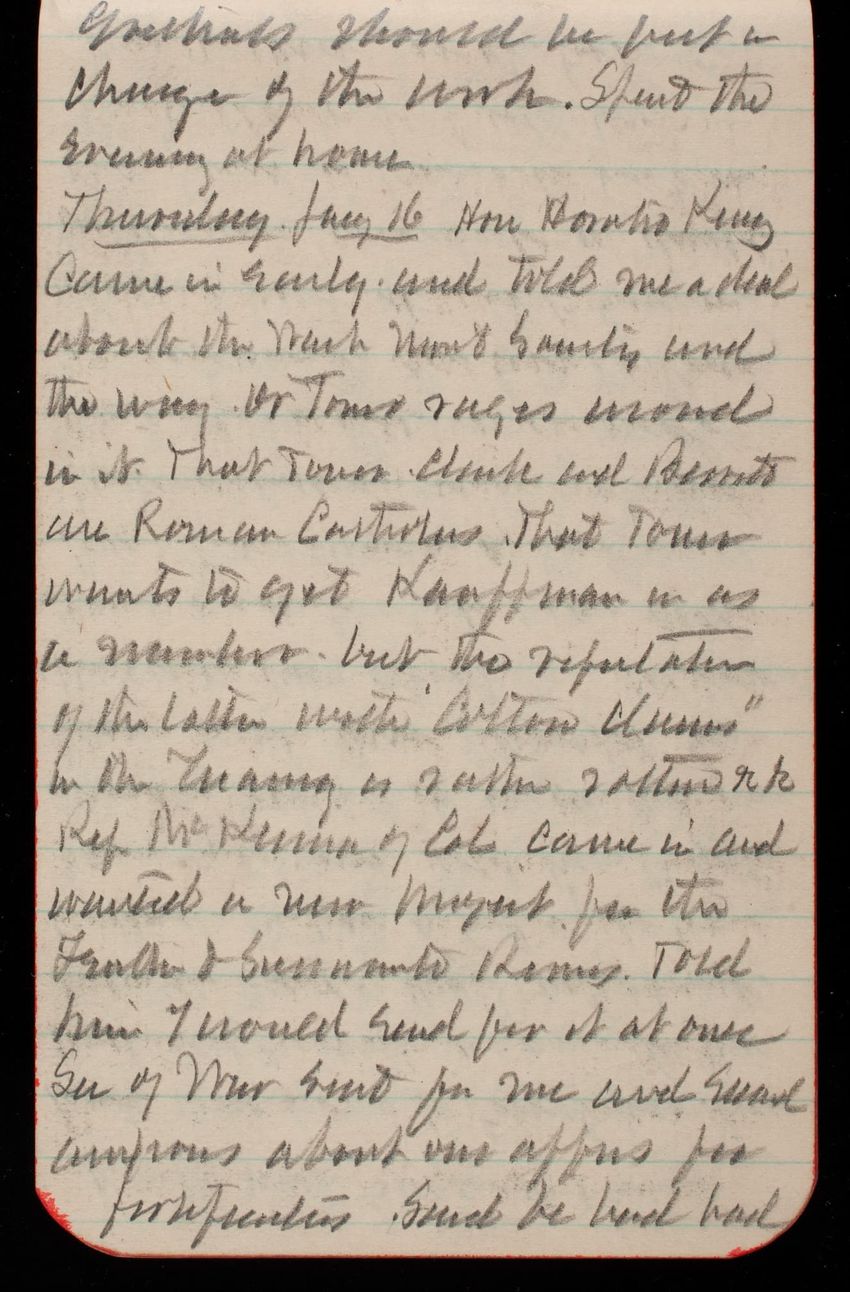 Goethals should be put in
charge of the work. Spent the
evening at home
Thursday. Jany 16 Hon Horatio King
Came in early and told me a deal
about the Wash Mont Society and
the way Dr Toner runs around
in it. That Toner Clark and
are Roman Catholics. That Toner
wants to get Kauffman in as
a member. but the reputation
of the latter with "Cotton Claims"
in the Treasury is rather rotten &c
Rep McKenna of Cal came in and
wanted a new project for the
Feather & Sacramento Rivers. Told
him I would send for it at once
Sec of War sent for me and Said
about our for
fortifications. Said he had had